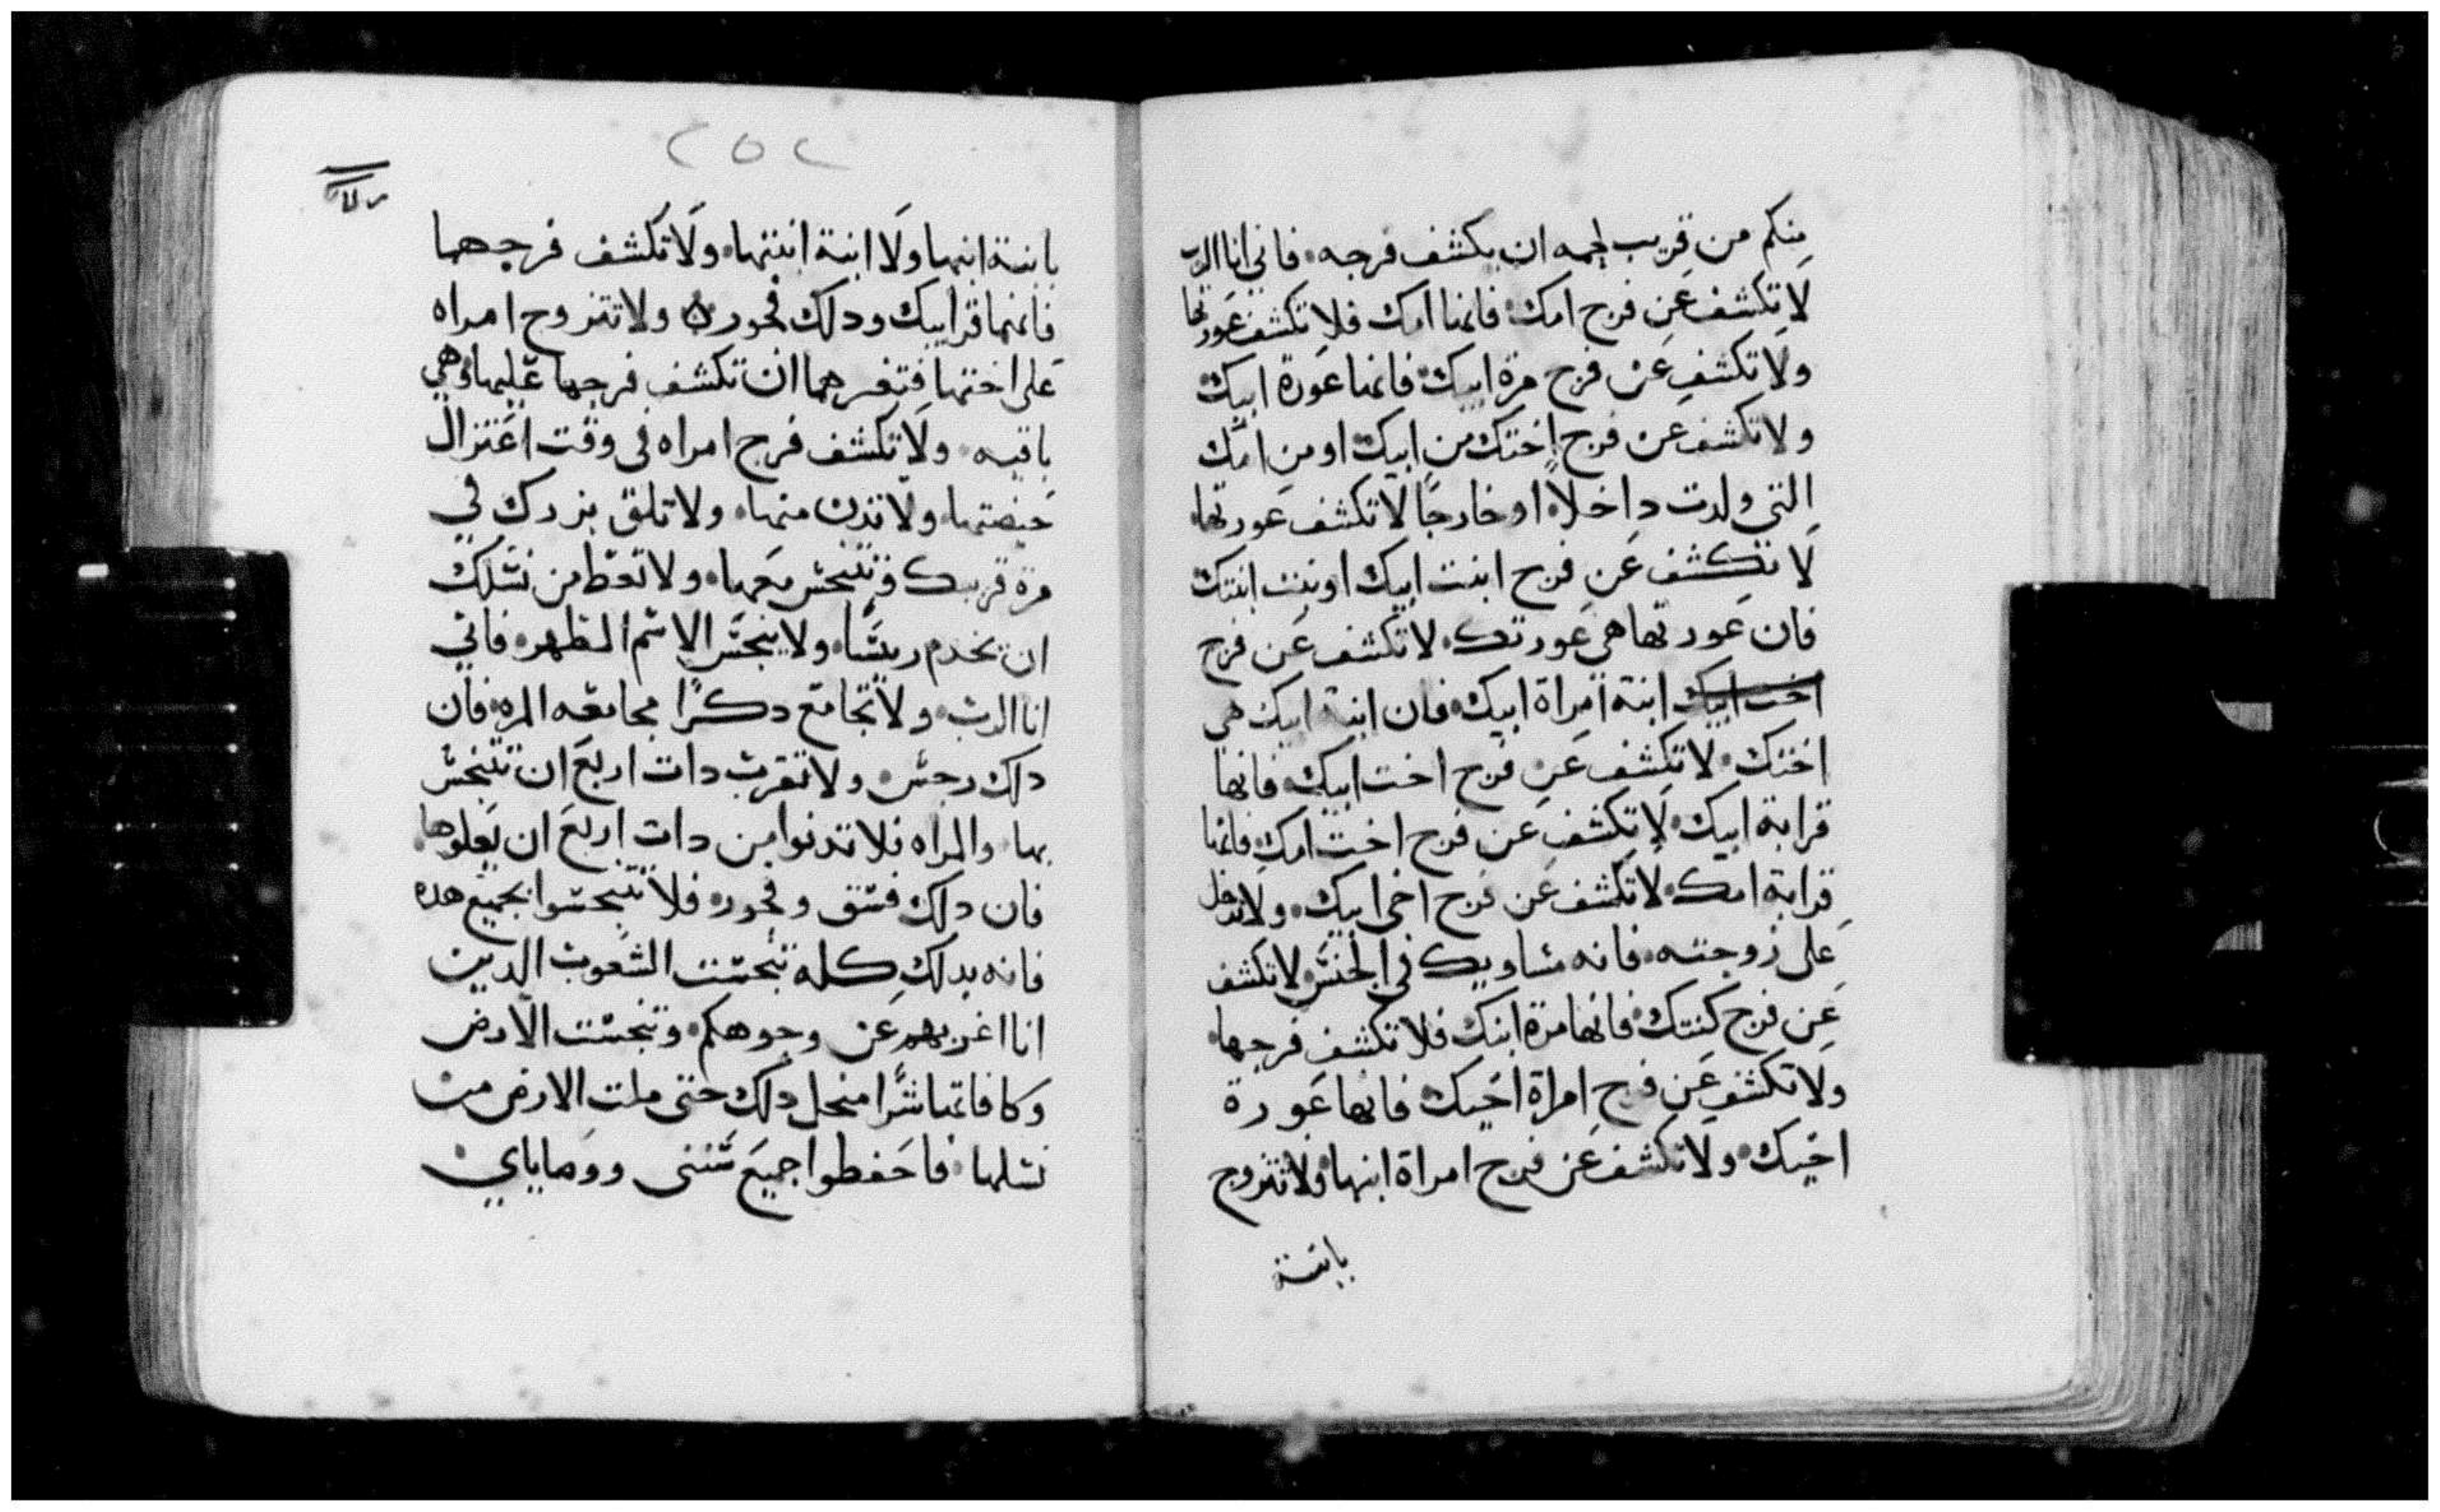 منكم من قريب لحمه ان يكشف فرجه. فاني انا الرب
لا تكشف عن فرج امك. فانها امك فلا تكشف عورتها
ولا تكشف عن فرج مرة ابيك. فانها عورة ابيك
ولا تكشف عن فرج اختك من ابيك او من امك
التي ولدت داخلا. او خارجا لا تكشف عورتها.
لا تكشف عن فرج ابنت ابنك او بنت ابنتك
فان عورتها هي عورتك. لا تكشف عن فرج
اخت ابيك ابنة امراة ابيك. فان ابنة ابيك هي
اختك. لا تكشف عن فرج اخت ابيك. فانها
قرابة ابيك. لا تكشف عن فرج اخت امك. فانها
قرابة امك. لا تكشف عن فرج اخى ابيك. ولا تدخل
على زوجته. فانه مساويك في الجنس. لا تكشف
عن فرج كنتك. فانها مرة ابنك فلا تكشف فرجها.
ولا تكشف عن فرج امراة اخيك. فانها عورة
اخيك. ولا تكشف عن فرج امراة ابنها. ولا تتزوج
بابنة
٢٥٢
بابنة ابنها ولا ابنة ابنتها. ولا تكشف فرجهما
فانهما قرايبك ودلك فجور ولا تتزوج امراه
على اختها فتغرهما ان تكشف فرجها عليها وهي
باقيه. ولا تكشف فرج امراه فى وقت اعتزال
حيضتها. ولا تدن منها. ولا تلق بزرك في
مرة قريبك فتتنجس معها. ولا تعط من نسلك
ان يخدم ريسا. ولا ينجس الاسم الطهر. فاني
انا الرب. ولا تجامع دكرا مجامعه المره. فان
دلك رجس. ولا تقرب دات اربع ان تتنجس
بها. والمراه فلا تدنوا من دات اربع ان يعلوها.
فان دلك فسق وفجور. فلا تتنجسوا بجميع هده
فانه بدلك كله تنجست الشعوب الدين
انا اغربهم عن وجوهكم. وتنجست الارض
وكافاتها شرا دلك حتى ملت الارض من
نسلها. فاحفطوا جميع سننى ووصاياي